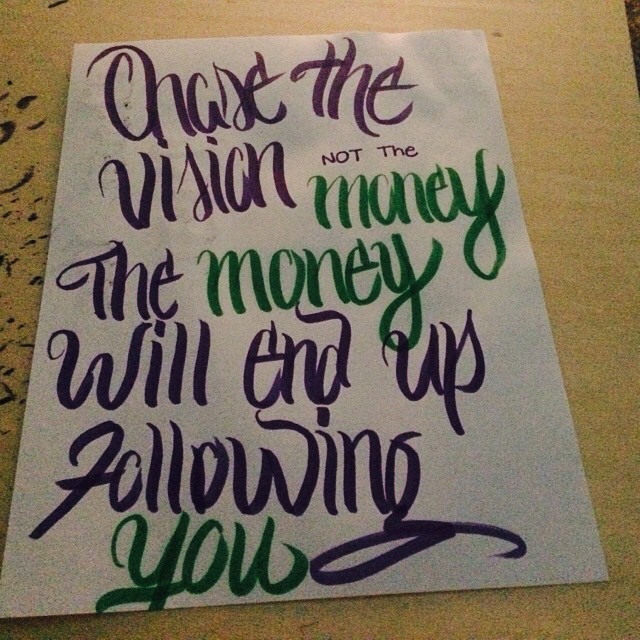 Chase the
vision NOT The money
The money
will end up
Following
You